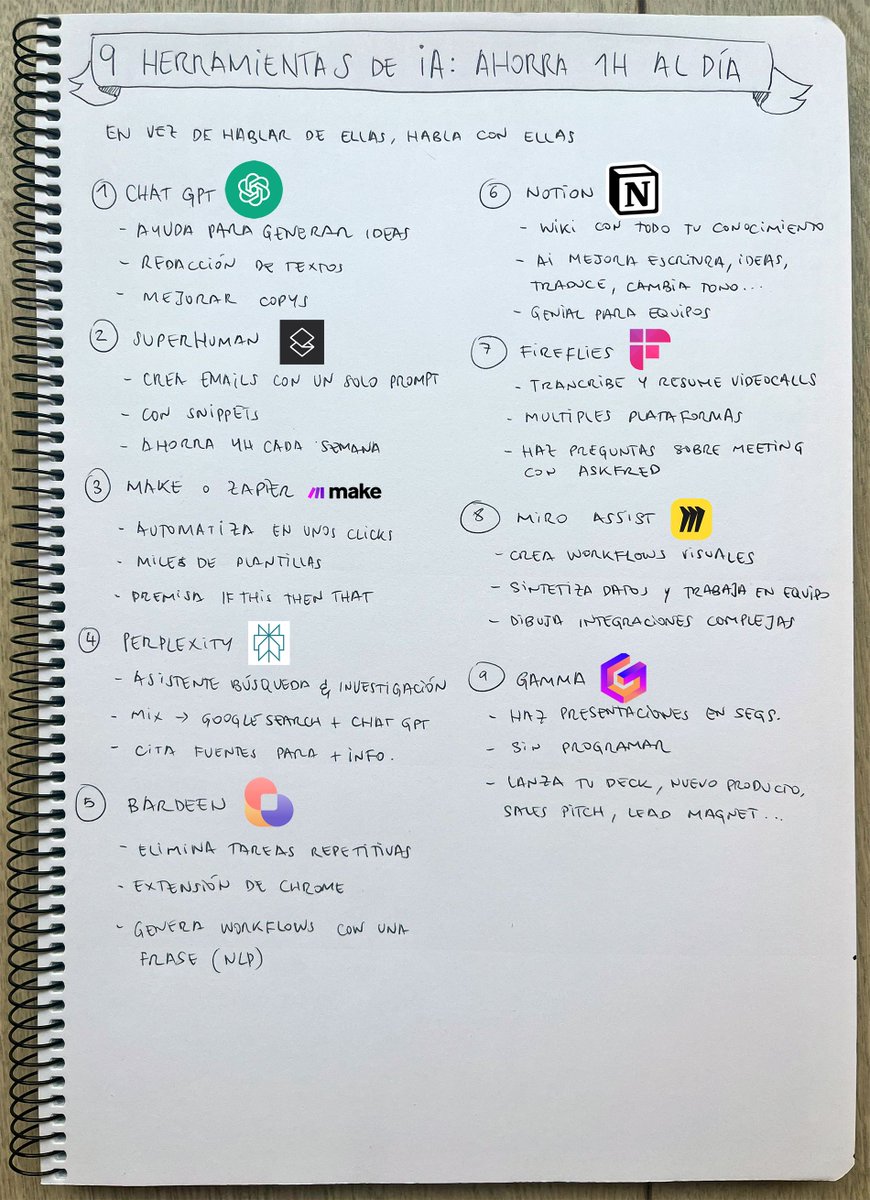 9 HERRAMIENTAS DE iA: AHORRA 1H AL DÍA
EN VEZ DE HABLAR DE ELLAS, HABLA CON ELLAS
1 CHAT GPT
- AYUDA PARA GENERAR IDEAS
- REDACCIÓN DE TEXTOS
- MEJORAR COPYS
2 SUPERHUMAN
- CREA EMAILS CON UN SOLO PROMPT
- CON SNIPPETS
- AHORRA 4H CADA SEMANA
3 MAKE O ZAPIER make
- AUTOMATIZA EN UNOS CLICKS
- MILES DE PLANTILLAS
- PREMISA IF THIS THEN THAT
4 PERPLEXITY
- ASISTENTE BÚSQUEDA & INVESTIGACIÓN
- MIX → GOOGLE SEARCH + CHAT GPT
- CITA FUENTES PARA + INFO.
5 BARDEEN
- ELIMINA TAREAS REPETITIVAS
- EXTENSIÓN DE CHROME
- GENERA WORKFLOWS CON UNA
FRASE (NLP)
6 NOTION N
- WIKI CON TODO TU CONOCIMIENTO
- Ai MEJORA ESCRITURA, IDEAS,
TRADUCE, CAMBIA TONO...
- GENIAL PARA EQUIPOS
7 FIREFLIES
- TRANCRIBE Y RESUME VIDEOCALLS
- MULTIPLES PLATAFORMAS
- HAZ PREGUNTAS SOBRE MEETING
CON ASKFRED
8 MIRO ASSIST
- CREA WORKFLOWS VISUALES
- SINTETIZA DATOS Y TRABAJA EN EQUIPO
- DIBUJA INTEGRACIONES COMPLEJAS
9 GAMMA
- HAZ PRESENTACIONES EN SEGS.
- SIN PROGRAMAR
- LANZA TU DECK, NUEVO PRODUCTO,
SALES PITCH, LEAD MAGNET...